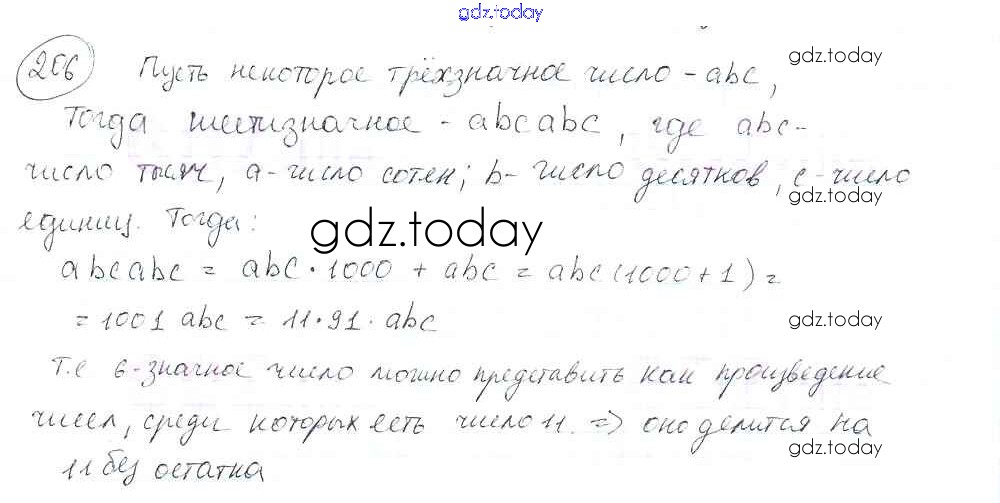 gdz.today
206 Пусть некоторое трёхзначное число - abc, gdz.today
Тогда шестизначное - abcabc, где abc-
число тысяч, a- число сотен; b- число десятков, c- число
gdz.today
единиц. Тогда:
gdz.today
abcabc = abc·1000 + abc = abc(1000+1) =
= 1001 abc = 11·91·abc gdz.today
т.е 6-значное число можно представить как произведение
чисел, среди которых есть число 11. => оно делится на
gdz.today
11 без остатка